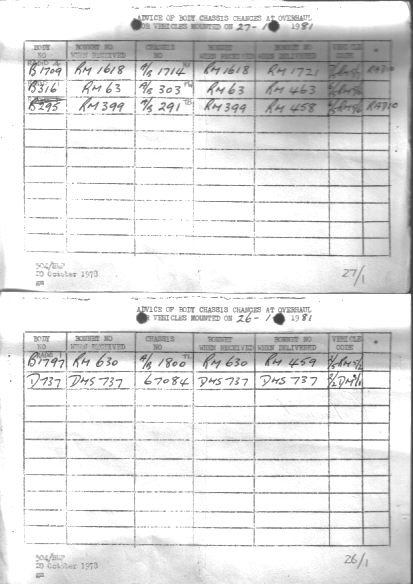 ADVICE OF BODY CHASSIS CHANGES AT OVERHAUL
FOR VEHICLES MOUNTED ON 27-1 1981
BODY NO BONNET NO WHEN RECEIVED CHASSIS NO BONNET WHEN RECEIVED BONNET NO WHEN DELIVERED VEHICLE CODE *
B1709 RM 1618 A/S 1714 RM 1618 RM 1721
B316 RM 63 A/S 303 RM 63 RM 463
B295 RM 399 A/S 291 RM 399 RM 458
20 October 1978
gm
27/1
ADVICE OF BODY CHASSIS CHANGES AT OVERHAUL
FOR VEHICLES MOUNTED ON 26-1 1981
BODY NO BONNET NO WHEN RECEIVED CHASSIS NO BONNET WHEN RECEIVED BONNET NO WHEN DELIVERED VEHICLE CODE *
B1797 RM 630 A/S 1800 RM 630 RM 459
D737 DMS 737 67084 DMS 737 DMS 737
20 October 1978
gm
26/1